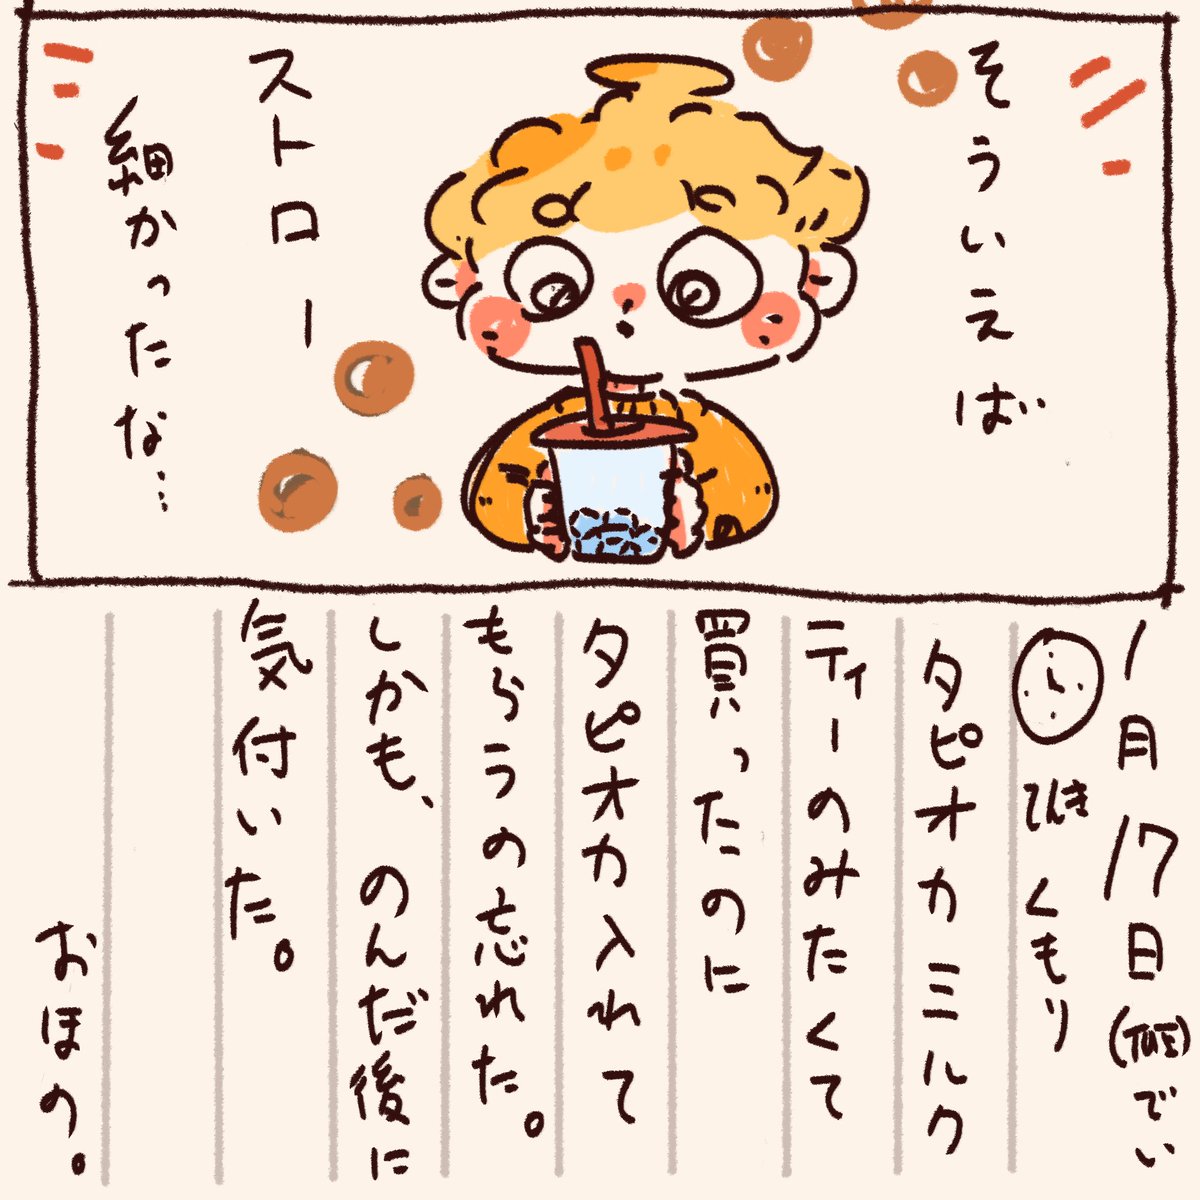 そういえば
ストロー
細かったな…
1月17日(金)でい
てんき くもり
タピオカミルク
ティーのみたくて
買ったのに
タピオカ入れて
もらうの忘れた。
しかも、のんだ後に
気付いた。
おほの。